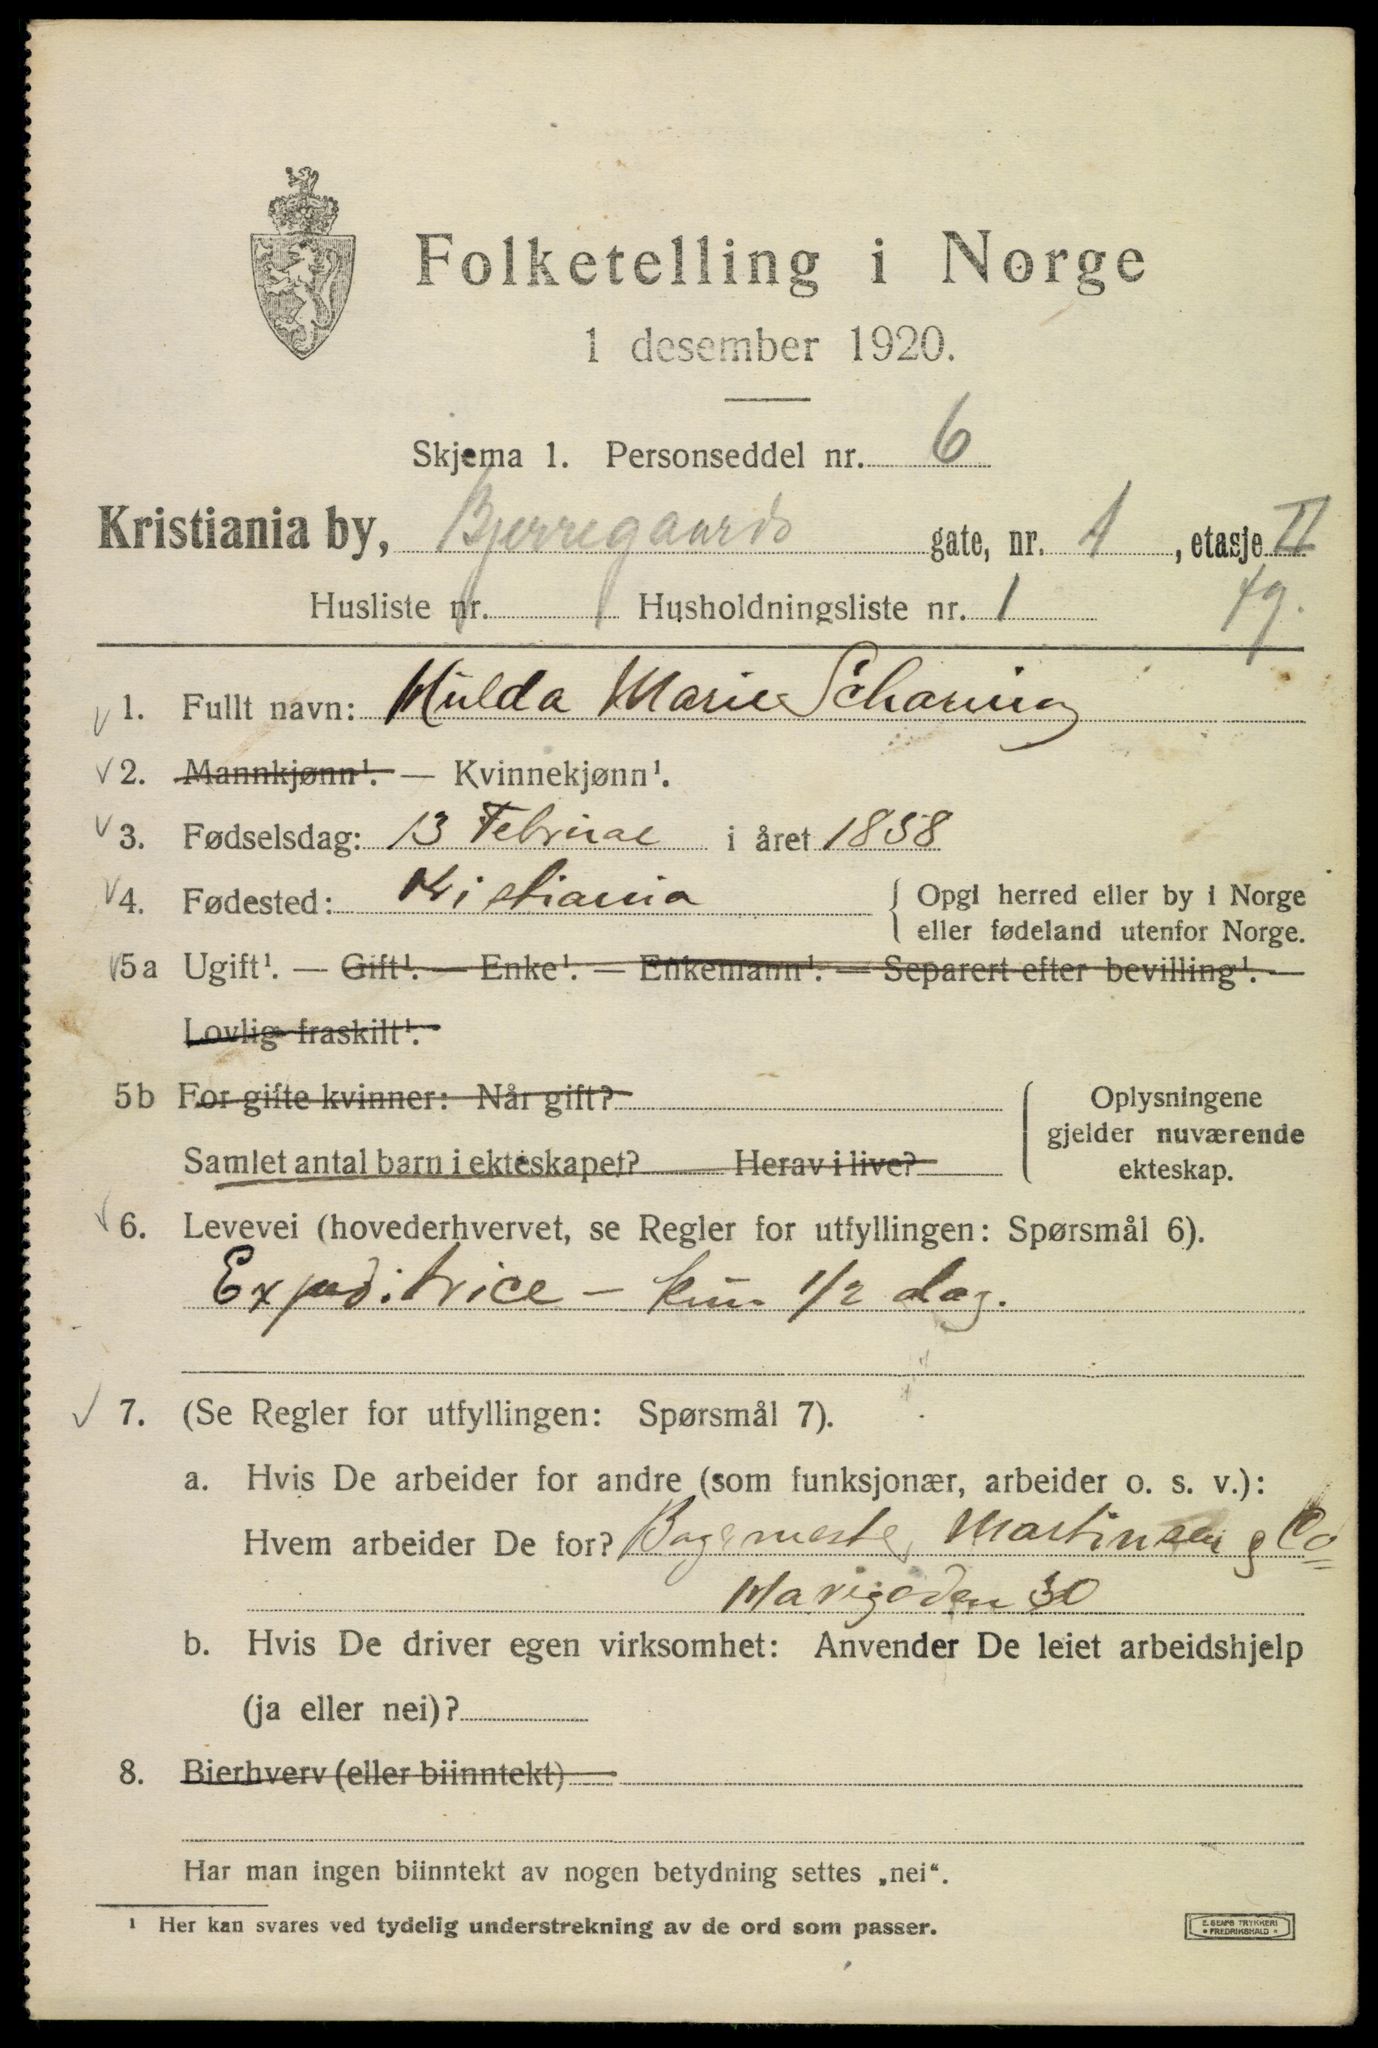 Folketelling i Norge
1 desember 1920.
Skjema 1. Personseddel nr. 6
Kristiania by, Bjerregaards gate, nr. 1, etasje II
Husliste nr. 1 Husholdningsliste nr. 1 tg.
1. Fullt navn: Hulda Marie Scharning
2. Mannkjønn¹. — Kvinnekjønn¹.
3. Fødselsdag: 13 Februar i året 1858
4. Fødested: Kristiania { Opgi herred eller by i Norge
eller fødeland utenfor Norge.
5a Ugift¹. — Gift¹. — Enke¹. — Enkemann¹. — Separert efter bevilling¹. —
Lovlig fraskilt¹.
5b For gifte kvinner: Når gift? { Oplysningene
gjelder nuværende
Samlet antal barn i ekteskapet? Herav i live?
ekteskap.
6. Levevei (hovederhvervet, se Regler for utfyllingen: Spørsmål 6).
Expeditrice – kun 1/2 dag.
7. (Se Regler for utfyllingen: Spørsmål 7).
a. Hvis De arbeider for andre (som funksjonær, arbeider o. s. v.):
Hvem arbeider De for? Bagermester Martinsen & Co
30
b. Hvis De driver egen virksomhet: Anvender De leiet arbeidshjelp
(ja eller nei)?
8. Bierhverv (eller biinntekt)
Har man ingen biinntekt av nogen betydning settes „nei“.
¹ Her kan svares ved tydelig understrekning av de ord som passer.
E. SEMS TRYKKERI
• FREDRIKSHALD •